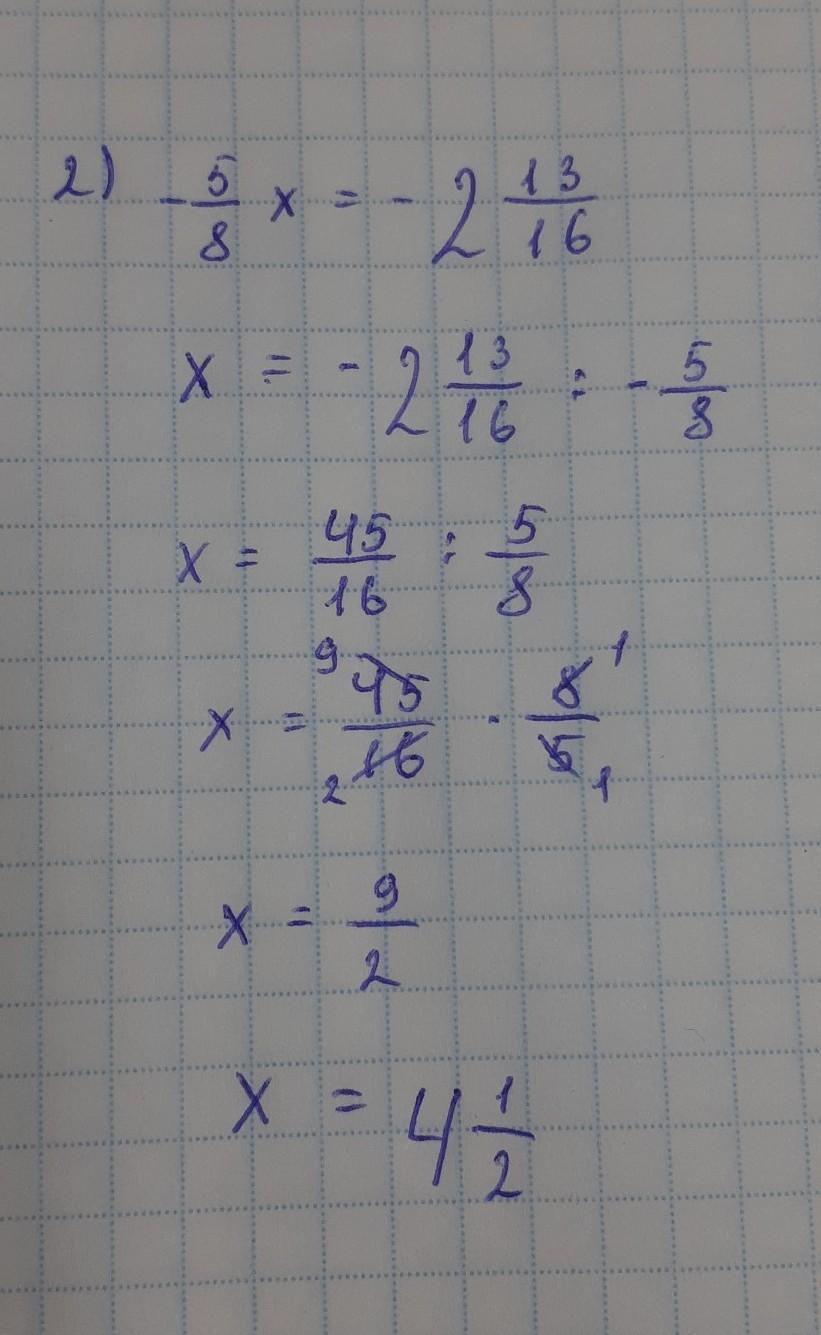 2) -5/8 x = - 2 13/16
x = - 2 13/16 : - 5/8
x = 45/16 : 5/8
x = 9 45/16 2 · 8/5 1 1
x = 9/2
x = 4 1/2